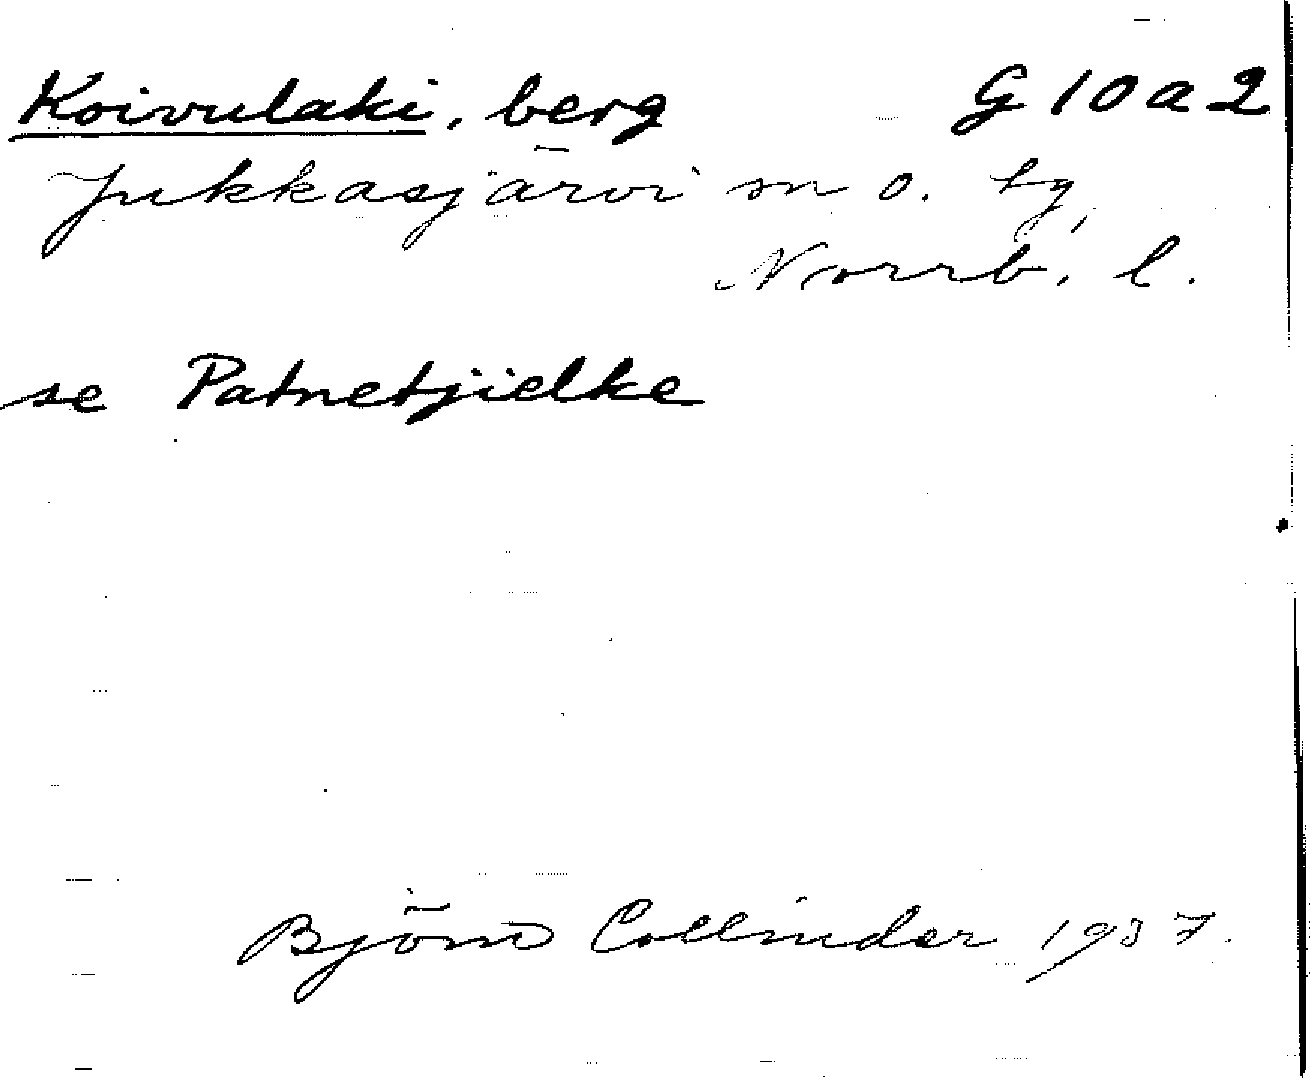 Koivulaki, berg G 10 a 2
Jukkasjärvi sn o. tg,
Norrb. l.
se Patnetjielke
Björn Collinder 1937.